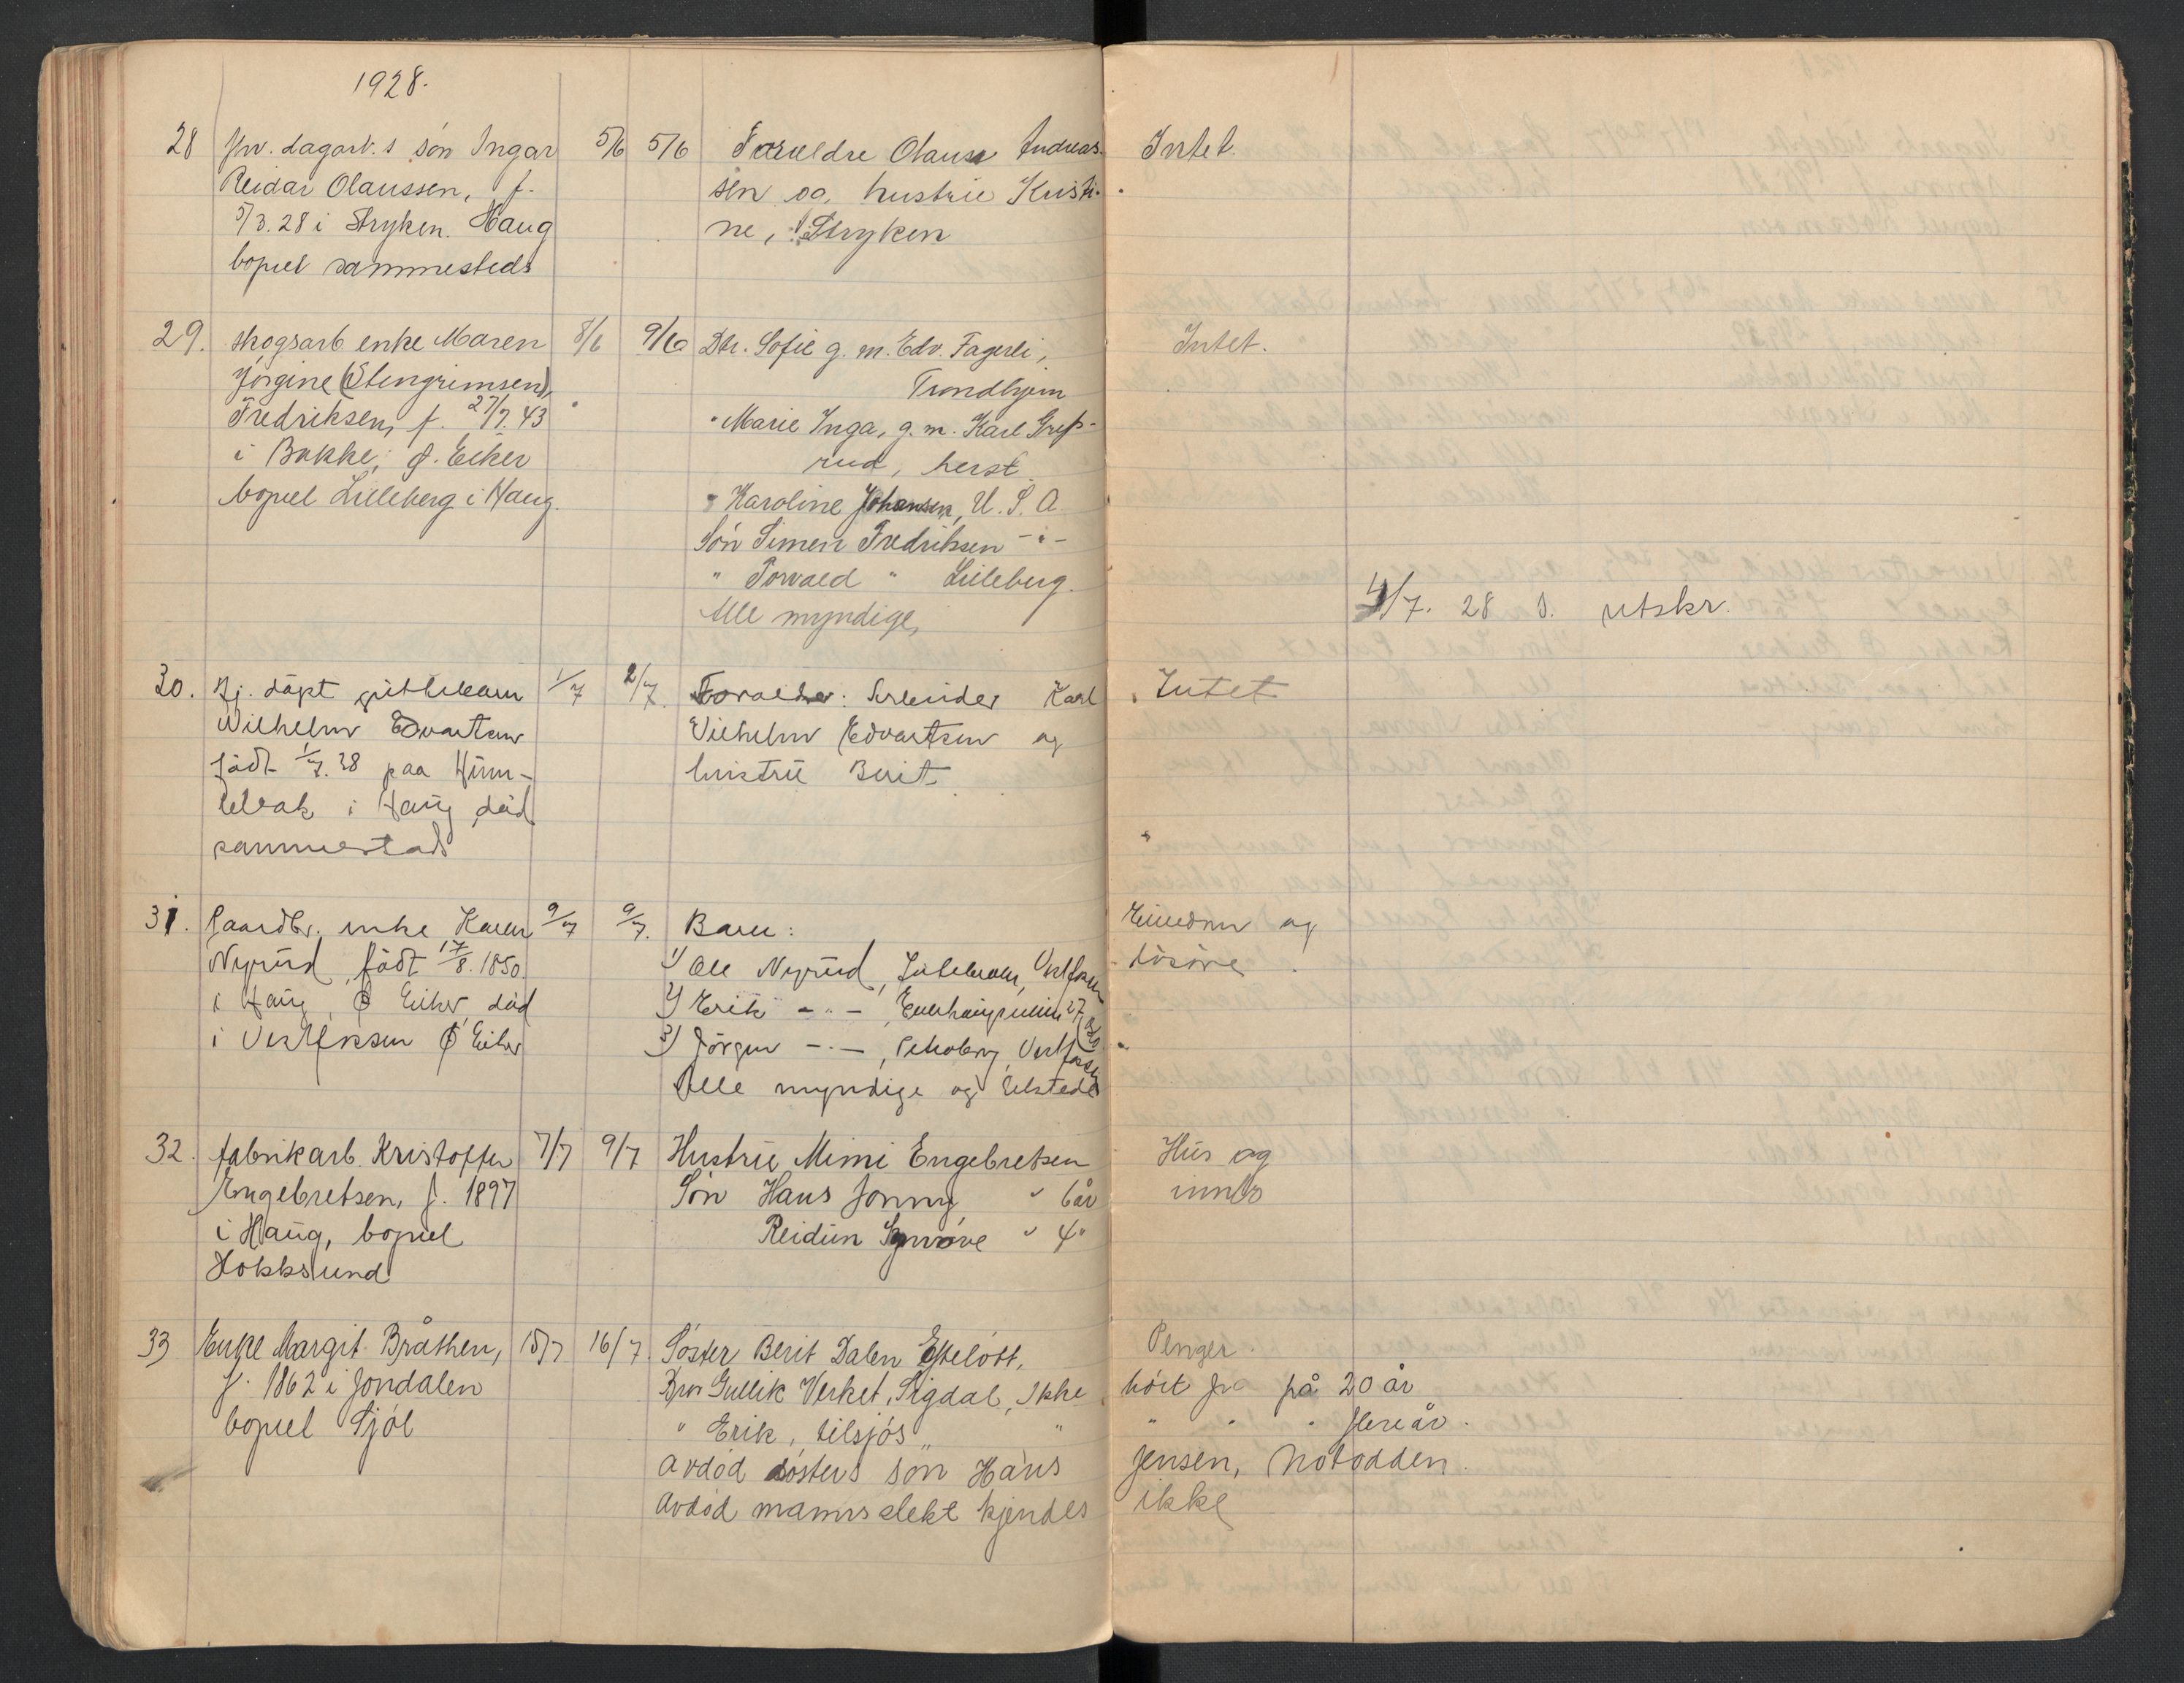 1928.
28 fhv. dagarb.s søn Ingar 5/6 5/6 Foreldre Olaus Andreas- Intet.
Reidar Olaussen, f. sen og hustrue Kristi-
5/3.28 i Stryken. Haug ne, Stryken
bopel sammesteds
29. skogsarb. enke Maren 8/6 9/6 Dtr. Sofie g. m. Edv. Fagerli, Intet.
Jørgine (Stengrimsen), Trondhjem
Fredriksen, f. 27/7.43 " Marie Inga, g. m. Karl
i Bakke, Ø. Eiker rud, herst.
bopel Lilleberg i Haug. " Karoline Johansen, U. S. A
Søn Simen Fredriksen -"-
" Torvald " Lilleberg.
4/7. 28 S. utskr.
Alle myndige,
30. Ej. døpt guttebarn 1/7 2/7. Forældre: Arbeider Karl Intet
Wilhelm Edvartsen Vilhelm Edvartsen og
født 1/7.28 paa hustru Berit
i Haug død
sammesteds
31. Gaardbr. enke Karen 9/7 9/7. Barn: Eiendom og
Nyrud født 17/8. 1850 1) Ole Nyrud, Vestfossen løsøre.
i Haug Ø Eiker, død 2) Erik -"-
i Vestfossen Ø Eiker 3) Jørgen -"-, Vestfossen
Alle myndige og tilstede
32. fabrikarb. Kristoffer 7/7 9/7 Hustrue Mimi Engebretsen Hus og
Engebretsen, f. 1897 Søn Hans Jonny " 6 år innbo
i Haug, bopel Reidun Synnøve " 4 "
Hokksund
33 Enke Margit Bråthen, 15/7 16/7. Søster Berit Dalen Eftelöst, Penger.
f. 1862 i Jondalen Bror Gullik Verket, Sigdal, ikke hört fra på 20 år
bopel Sjöl " Erik, tilsjös " " " " " flere år.
avdød søsters søn Hans Jensen, Notodden.
avdød manns slekt kjendes ikke